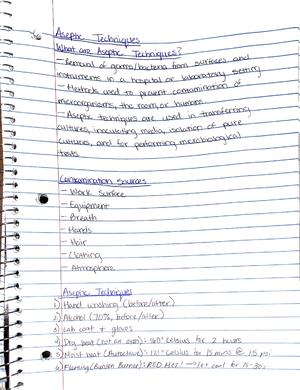 Aseptic Techniques
What are Aseptic Techniques?
- Removal of germs/bacteria from surfaces and
instruments in a hospital or laboratory setting
- Methods used to prevent contamination of
microorganisms, the room, or humans.
- Aseptic techniques are used in transferring
cultures, inoculating media, isolation of pure
cultures, and for performing microbiological
tests.
Contamination Sources
- Work Surface
- Equipment
- Breath
- Hands
- Hair
- Clothing
- Atmosphere
Aseptic Techniques
1) Hand washing (before/after)
2) Alcohol (70%, before/after)
3) Lab coat + gloves
4) Dry heat (hot air oven): 160° celsius for 2 hours
5) Moist heat (Autoclave): 121° celsius for 15 mins @ 15 psi
6) Flaming (Bunsen Burner): RED HOT! → let cool for 15-30s